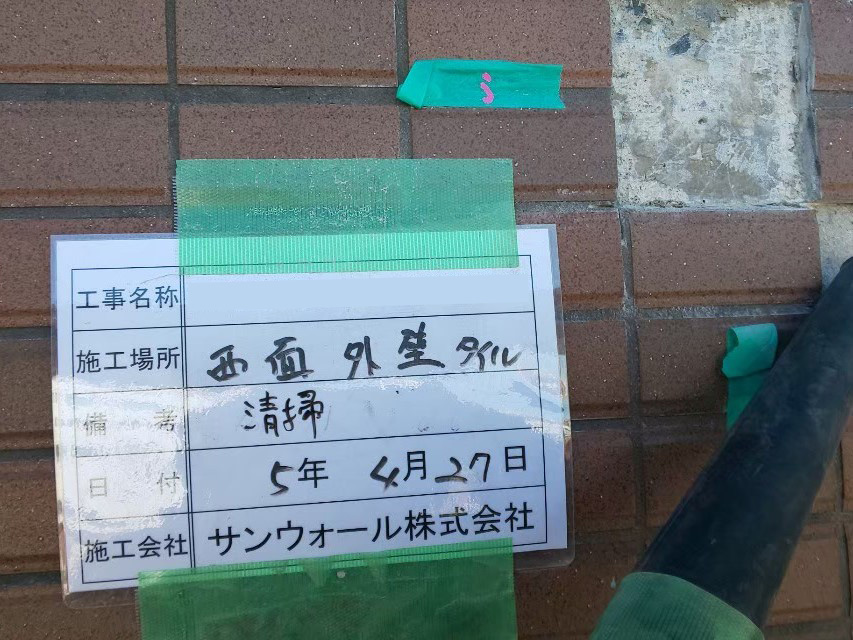 工事名称
施工場所 西面 外壁 タイル
備考 清掃
日付 5年 4月27日
施工会社 サンウォール株式会社